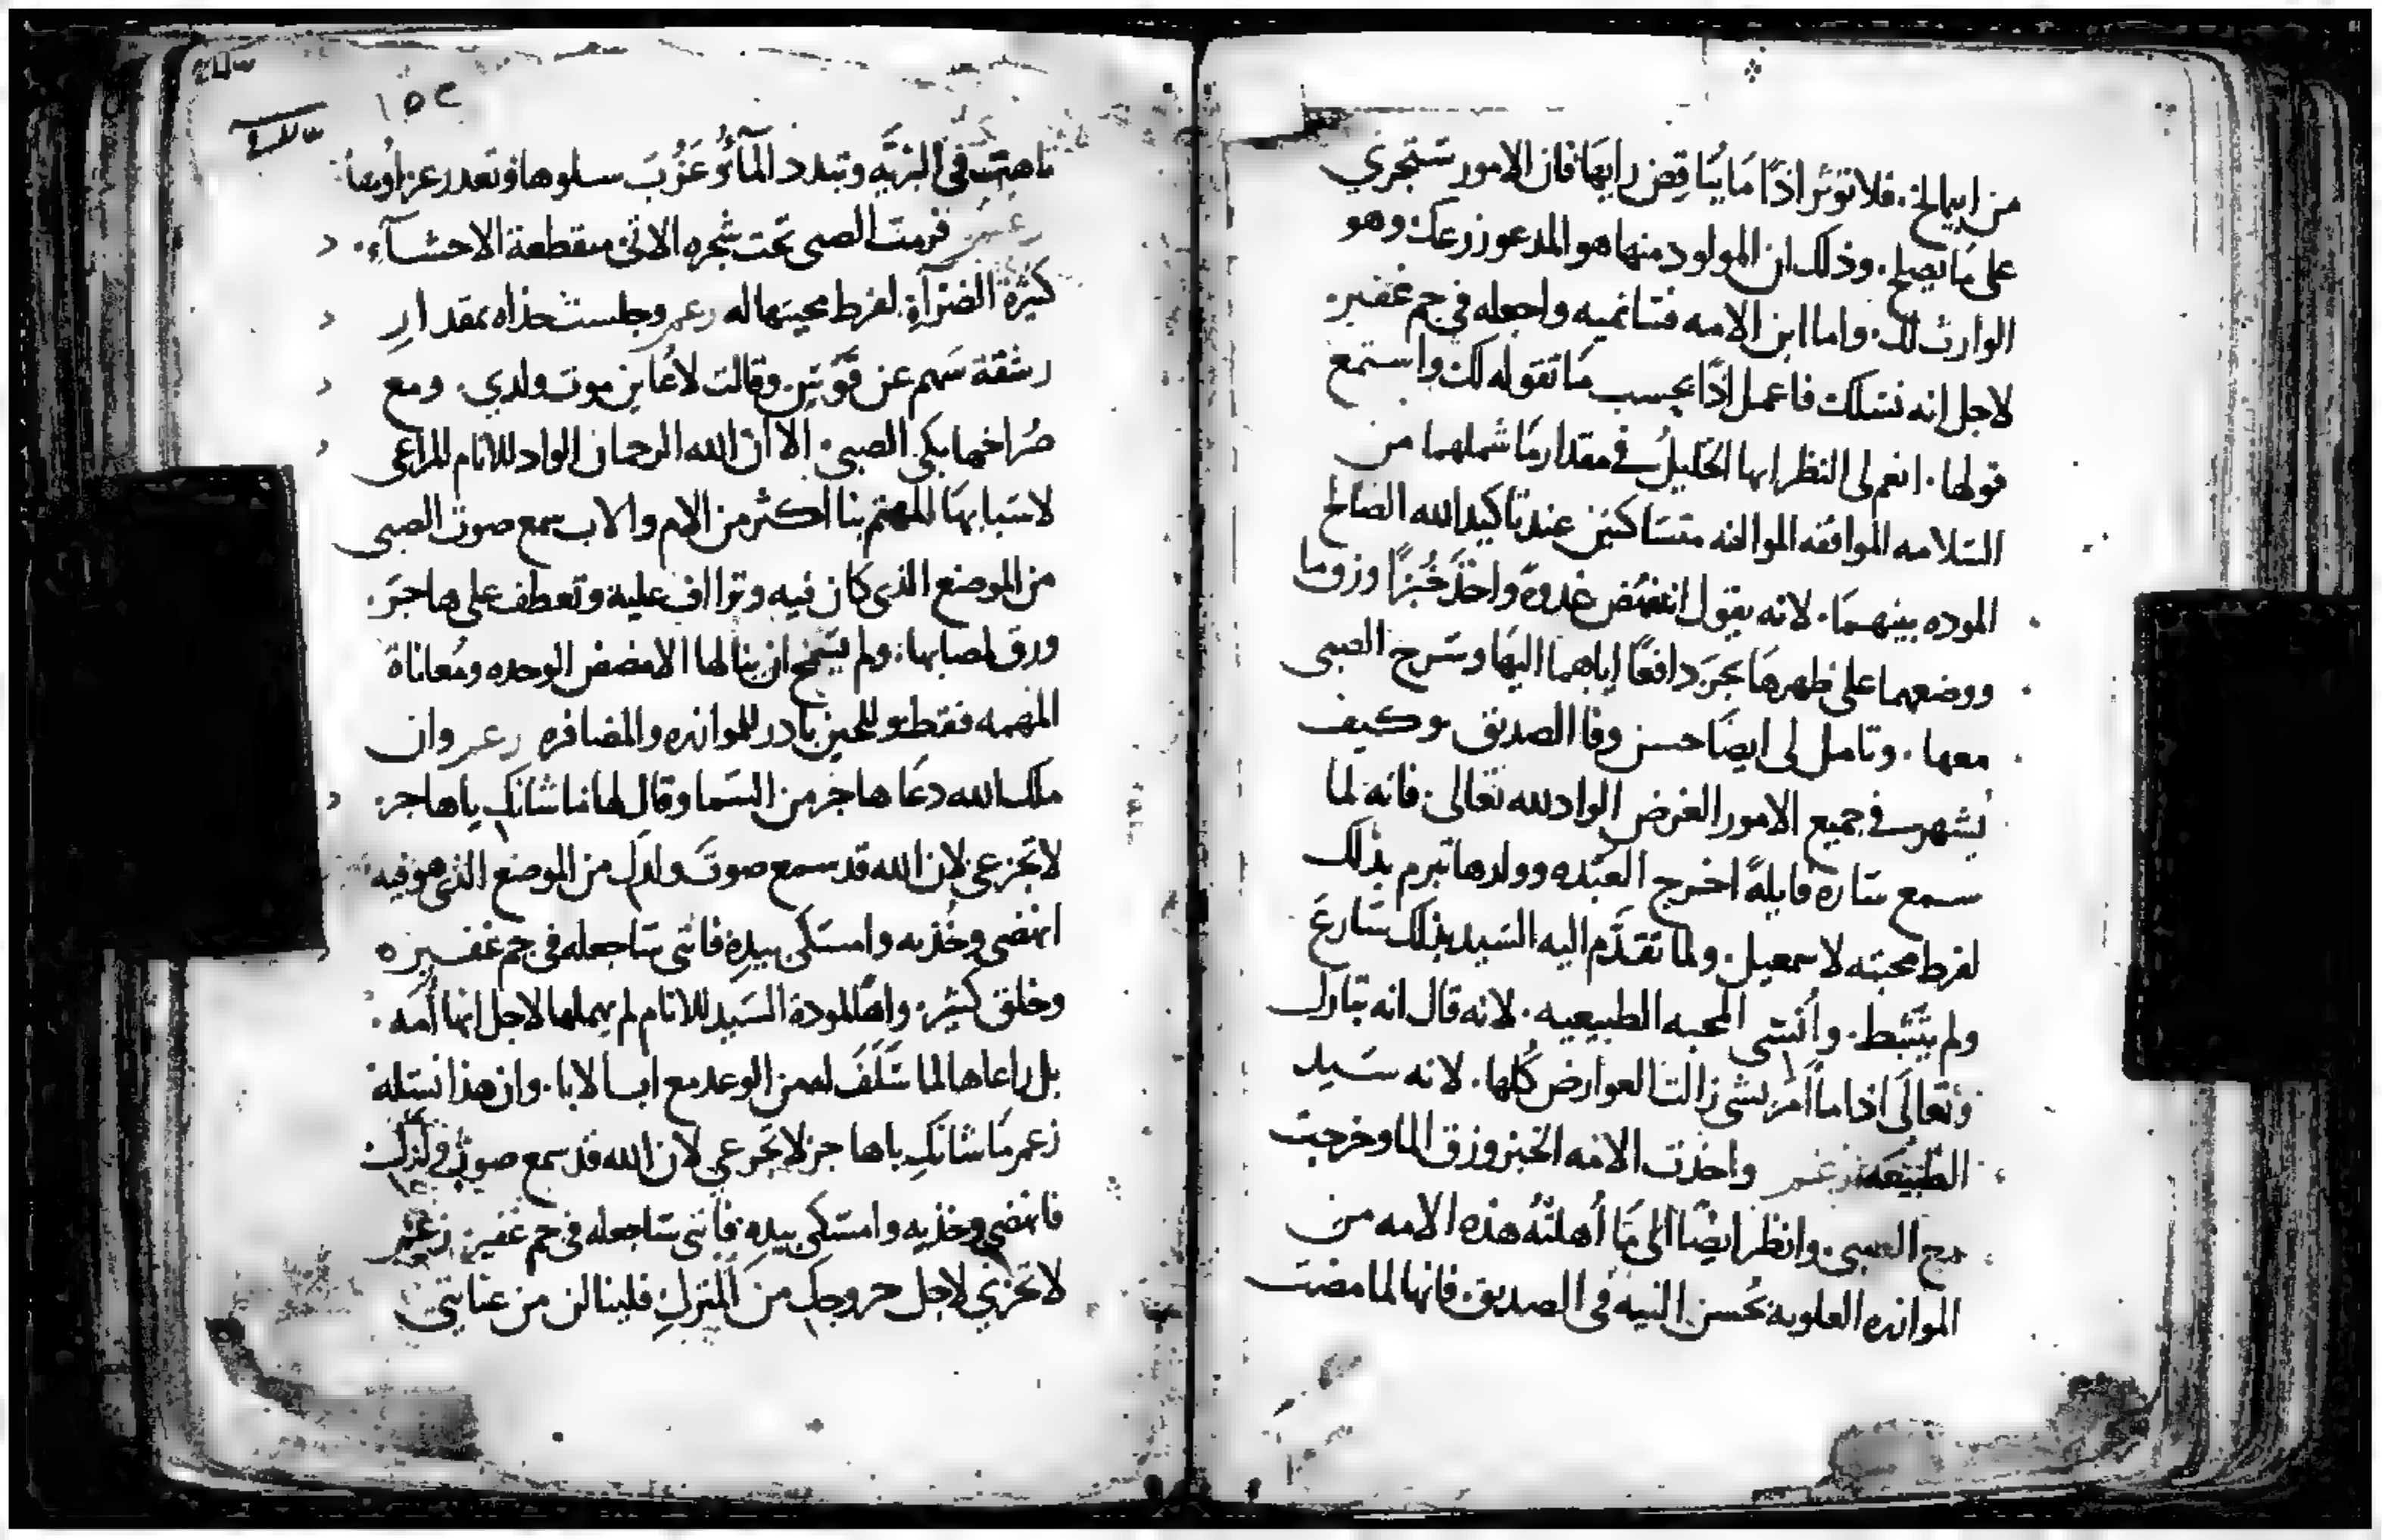 من ايمالخ. فلا توثر اذًا مَا يُنَاقِض رايهَا فان الامور سَتجري
على مَا يصلح. وذلك ان المولود منها هو المدعو زرعك وهو
الوارث لك. واما ابن الامه فسَانميه واجعله في جم غفير.
لاجل انه نسلك فاعمل اذًا بحسب مَا تقوله لك واستمع
قولها. انعم لي النظر ايها الخليلُ في مقدار مَا شملهما من
السَلامه الموافقه الموالفه متسَاكنين عند تاكيد الله الصَالح
الموده بينهمَا. لانه يقول انتهَض غدوةً واخذ خُبزًا وزق ما
ووضعهما على ظهر هَاجَر دافعًا اياهما اليهَا وسَرح الصبي
معها. وتامل لي ايضًا حسن وفا الصديق وكيف
يُشهر في جميع الامور الغرض الواد لله تعَالى. فانه لما
سمع سَاره قايلةً اخرج العبده وولدها تبرم بذلك
لفرط محبته لاسمعيل. ولما تقدَّم اليه السَيد بذلك سَارعَ
ولم يتثبط. وانُسي المحبه الطبيعيه. لانه قال انه تبارك
وتعالَى اذا ما اَمر بشي زالت العوارض كُلها. لانه سَيد
الطبيعَه زعم واخذت الامه الخبز وزق الما وخرجت
مع الصبي. وانظر ايضًا الى مَا أُهلتهُ هذه الامه من
الموازره العلويه بحُسن النيه في الصديق. فانها لما مضت
١٥٢
تاهت في البرّيَّه وتبدد المآءُ وعَزُبَ سلوها وتعدر عزاوها
زعم فرمت الصبي تحت شجره الاتي منقطعة الاحشآءِ.
كثيرة الضرآءِ لفرط محبتها له زعم وجلست حذاه بمقدار
رشقة سَهم عن قَوسٍ. وقالت لا عُاين موت ولدي. ومع
صُراخها بكى الصبي. الا ان الله الرحمان الواد للانام المراعي
لاسَبابهَا المهتم بنا اكثر من الام والاب سمع صوت الصبي
من الموضع الذي كان فيه وتراَاف عليه وتعطف على هاجَر.
ورق لمصابها. ولم يسَمح ان ينالها الا مضض الوحده ومُعاناة
المهمه فقط وللحين بادر للموازره والمضافره زعم وان
ملك الله دعَا هاجر من السَما وقال لها ما شانكِ ياهاجر.
لا تجزعي لان الله قد سمع صوتَ ولدك من الموضع الذي هو فيه
انهضي وخُذيه وامسَكي بيدِه فانني سَاجعله في جم غفيره
وخلق كثير. واهًا لمودة السَيد للانام لم يهملها لاجل انها أَمَه.
بل راعاها لما سَلَفَ له من الوعد مع اب الابا. وان هذا نسَله
زعم مَا شانكِ ياها جر لا تجزعي لان الله قد سمع صوت ولدك
فانهضي وخذيه وامسَكي بيدِه فانني سَاجعله في جم غفير. زعم
لا تحزني لاجل خروجكِ من المنزلِ فلينالن من عنايتي